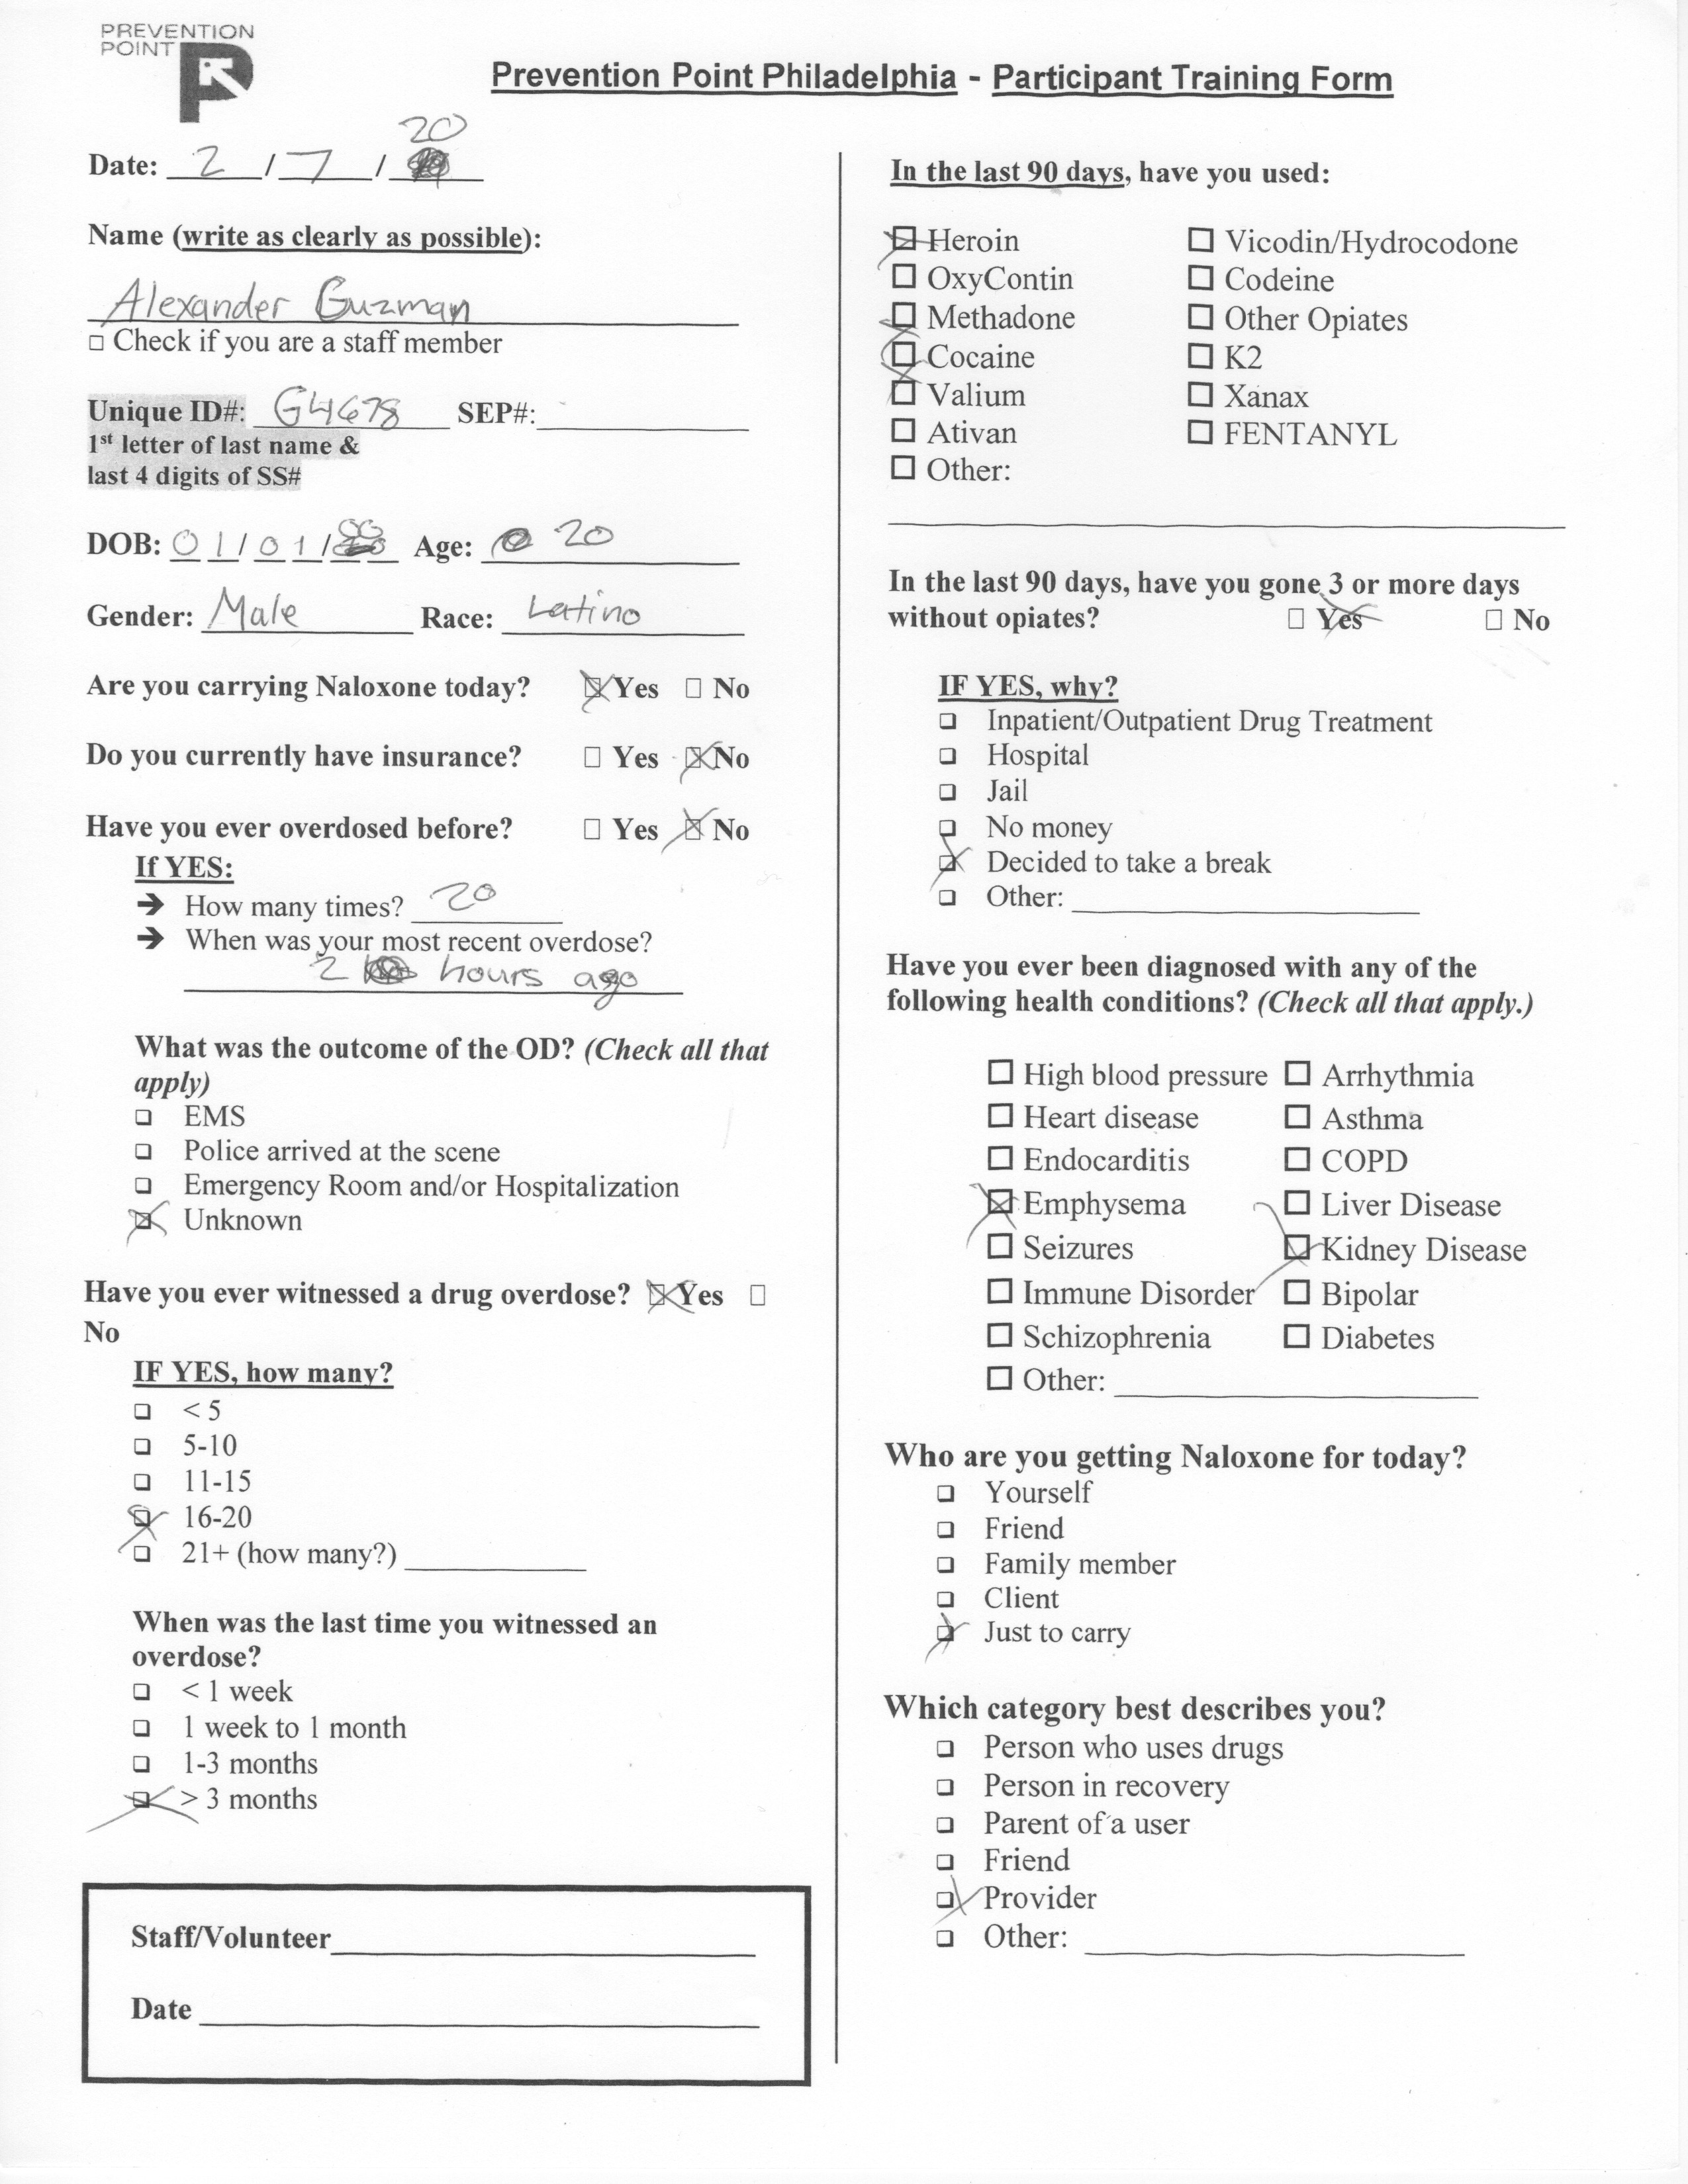 PREVENTION
POINT
Prevention Point Philadelphia - Participant Training Form
Date: 2 / 7 / 20
Name (write as clearly as possible):
Alexander Guzman
☐ Check if you are a staff member
Unique ID#: G4678 SEP#:
1st letter of last name &
last 4 digits of SS#
DOB: 01/01/00 Age: 20
Gender: Male Race: Latino
Are you carrying Naloxone today? ☒ Yes ☐ No
Do you currently have insurance? ☐ Yes ☒ No
Have you ever overdosed before? ☐ Yes ☒ No
If YES:
➔ How many times? 20
➔ When was your most recent overdose?
2 hours ago
What was the outcome of the OD? (Check all that
apply)
☐ EMS
☐ Police arrived at the scene
☐ Emergency Room and/or Hospitalization
☒ Unknown
Have you ever witnessed a drug overdose? ☒ Yes ☐
No
IF YES, how many?
☐ < 5
☐ 5-10
☐ 11-15
☒ 16-20
☐ 21+ (how many?)
When was the last time you witnessed an
overdose?
☐ < 1 week
☐ 1 week to 1 month
☐ 1-3 months
☒ > 3 months
Staff/Volunteer
Date
In the last 90 days, have you used:
☒ Heroin ☐ Vicodin/Hydrocodone
☐ OxyContin ☐ Codeine
☐ Methadone ☐ Other Opiates
☒ Cocaine ☐ K2
☐ Valium ☐ Xanax
☐ Ativan ☐ FENTANYL
☐ Other:
In the last 90 days, have you gone 3 or more days
without opiates? ☒ Yes ☐ No
IF YES, why?
☐ Inpatient/Outpatient Drug Treatment
☐ Hospital
☐ Jail
☐ No money
☒ Decided to take a break
☐ Other:
Have you ever been diagnosed with any of the
following health conditions? (Check all that apply.)
☐ High blood pressure ☐ Arrhythmia
☐ Heart disease ☐ Asthma
☐ Endocarditis ☐ COPD
☒ Emphysema ☐ Liver Disease
☐ Seizures ☒ Kidney Disease
☐ Immune Disorder ☐ Bipolar
☐ Schizophrenia ☐ Diabetes
☐ Other:
Who are you getting Naloxone for today?
☐ Yourself
☐ Friend
☐ Family member
☐ Client
☒ Just to carry
Which category best describes you?
☐ Person who uses drugs
☐ Person in recovery
☐ Parent of a user
☐ Friend
☒ Provider
☐ Other: